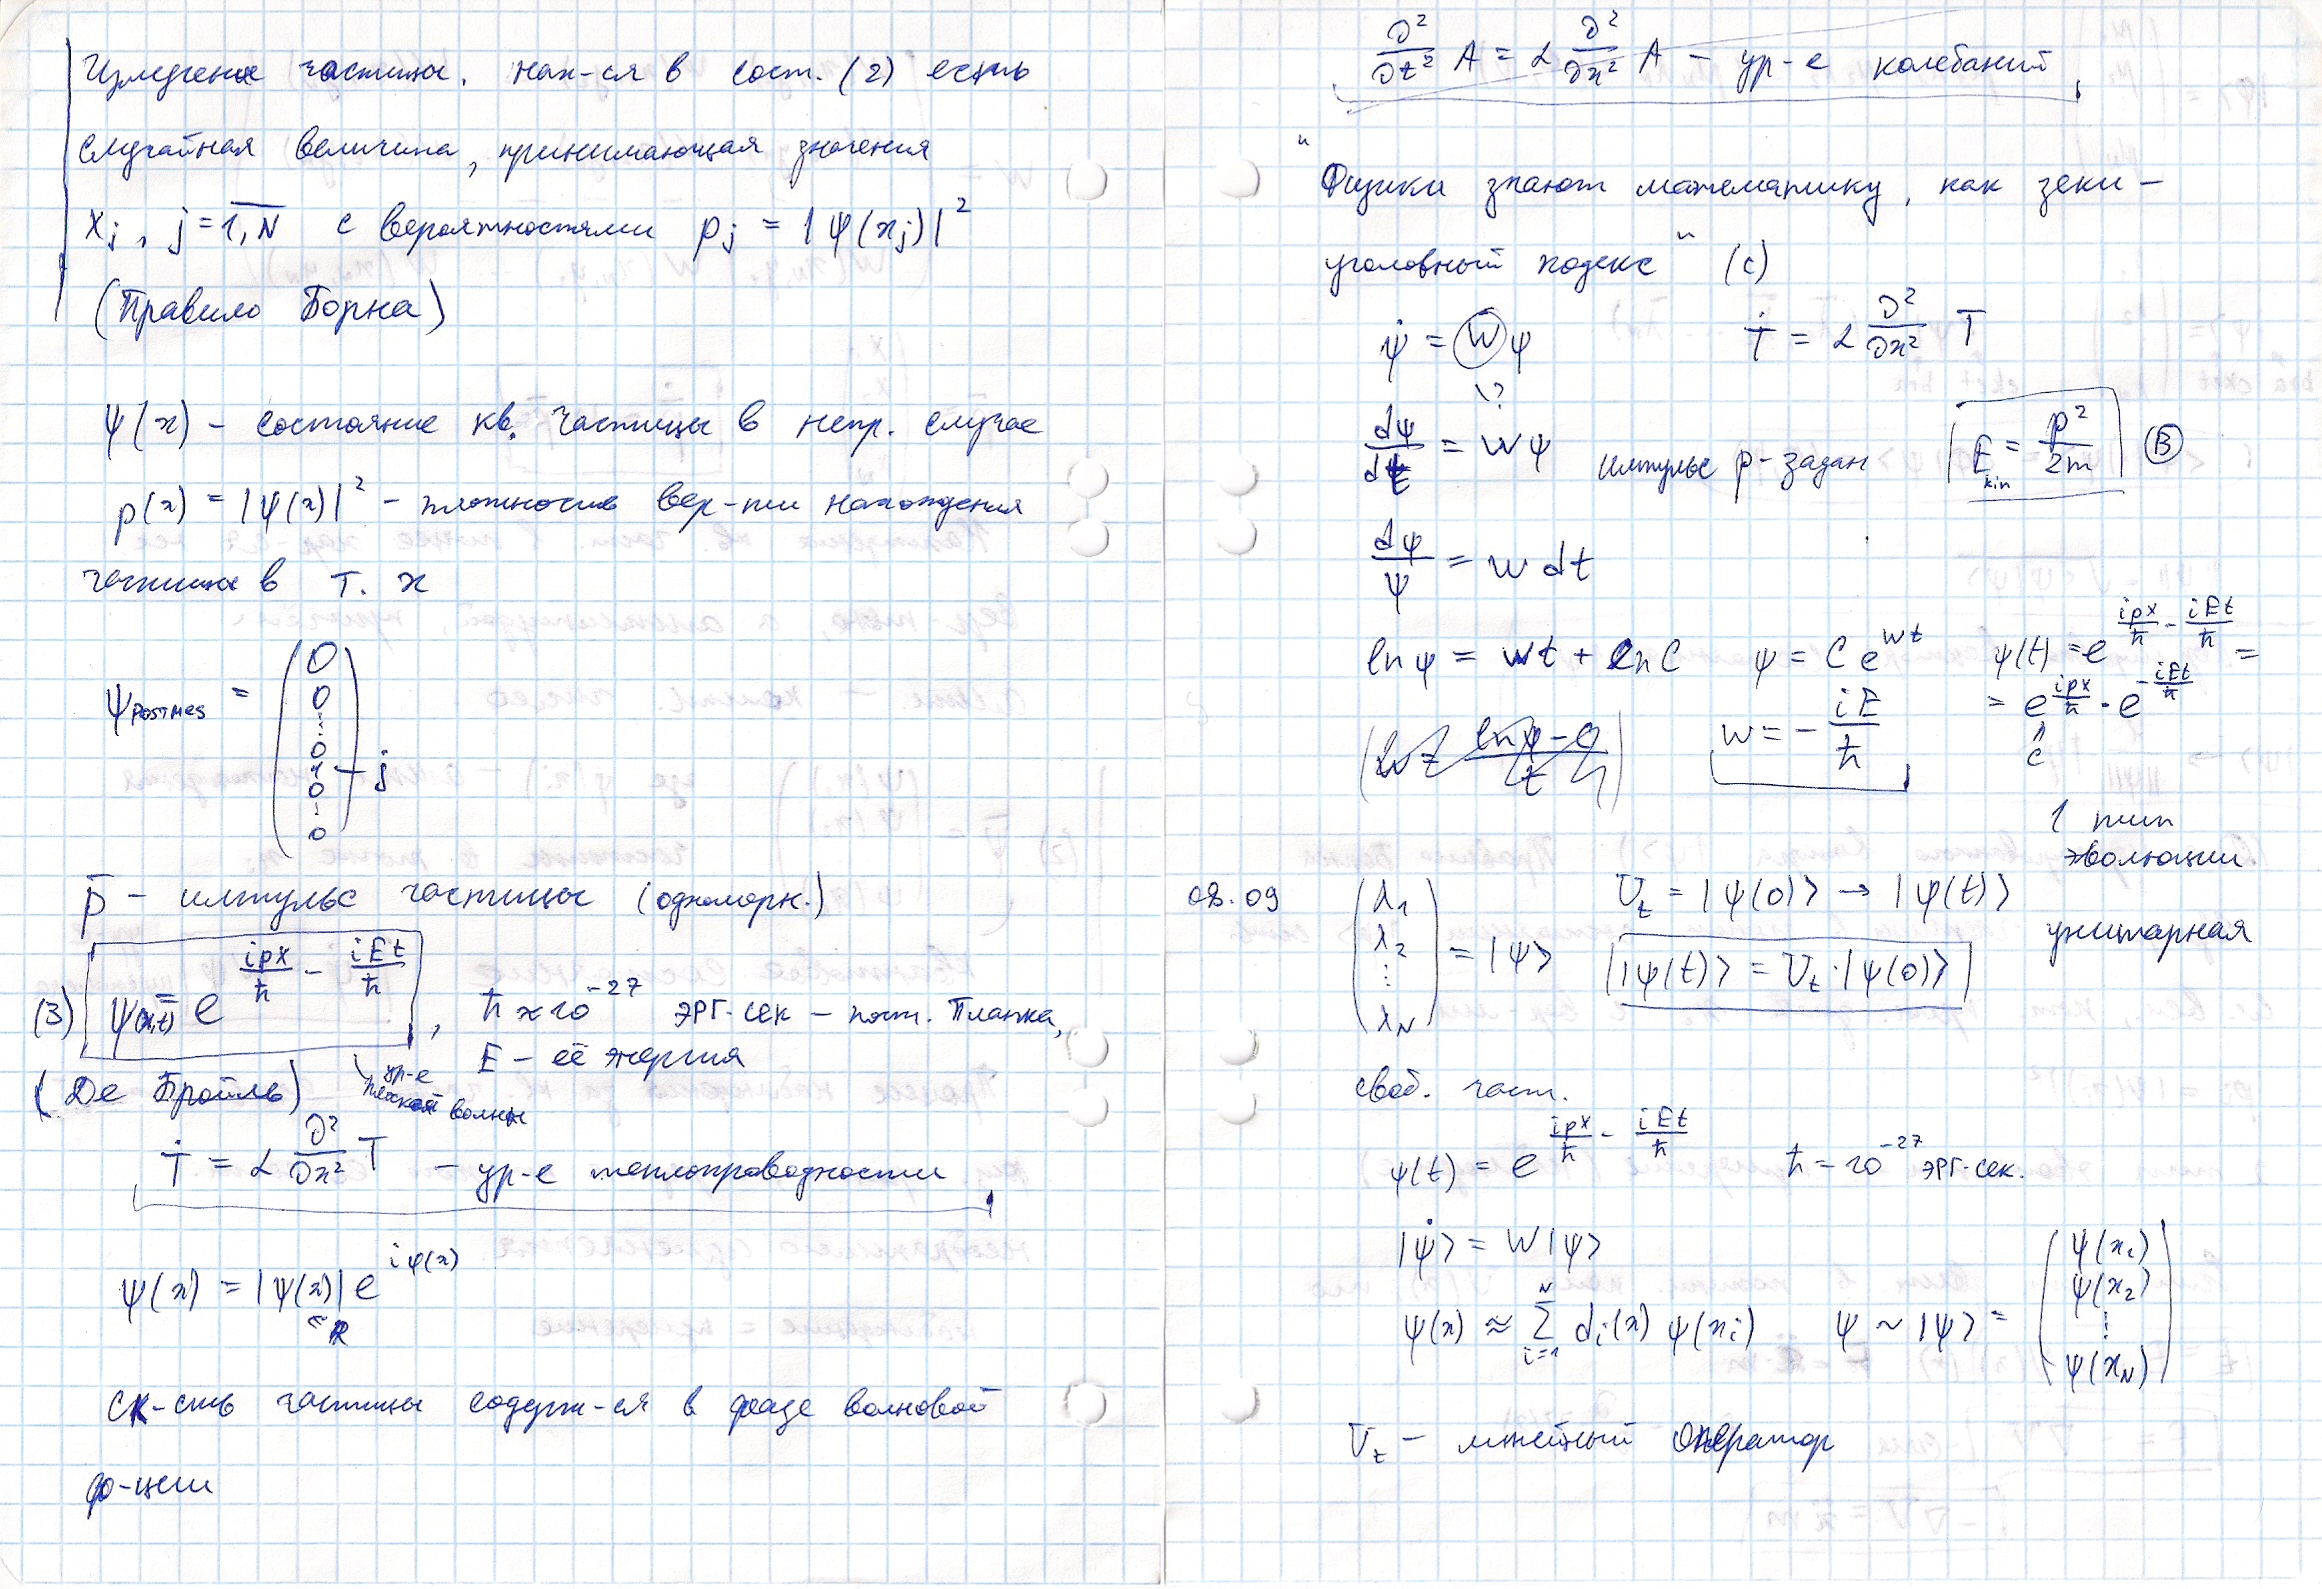 Измерение частицы, нах-ся в сост. (2) есть
случайная величина, принимающая значения
x_j, j = 1,N с вероятностями p_j = |ψ(x_j)|²
(Правило Борна)
ψ(x) – состояние кв. частицы в непр. случае
p(x) = |ψ(x)|² – плотность вер-ти нахождения
частицы в т. x
ψ_POSTMES = (0 0 ⋮ 0 1 0 ⋮ 0) – j
p̄ – импульс частицы (одномерн.)
(3) ψ(x,t) = e^{ipx/ħ - iEt/ħ}, ħ ≈ 10^{-27} эрг·сек – пост. Планка,
E – её энергия
(Де Бройль) ур-е плоской волны
Ṫ = α ∂²/∂x² T – ур-е теплопроводности
ψ(x) = |ψ(x)| e^{iφ(x)}
∈ R
ск-сть частицы содерж-ся в фазе волновой
ф-ции
∂²/∂t² A = α ∂²/∂x² A – ур-е колебаний
"Физики знают математику, как зеки –
уголовный кодекс" (c)
ψ̇ = Wψ Ṫ = α ∂²/∂x² T
?
dψ/dt = Wψ импульс p – задан E_kin = p²/2m (B)
dψ/ψ = W dt
ln ψ = Wt + ln C ψ = C e^{Wt} ψ(t) = e^{ipx/ħ - iEt/ħ} =
= e^{ipx/ħ} · e^{-iEt/ħ}
W = - iE/ħ
C
1 тип
эволюции
унитарная
08.09 (λ₁ λ₂ ⋮ λ_N) = |ψ> U_t = |ψ(0)> → |ψ(t)>
|ψ(t)> = U_t · |ψ(0)>
своб. част.
ψ(t) = e^{ipx/ħ - iEt/ħ} ħ = 10^{-27} эрг·сек.
|ψ̇> = W|ψ>
ψ(x) ≈ Σ_{i=1}^{N} d_i(x) ψ(x_i) ψ ~ |ψ> = (ψ(x₁) ψ(x₂) ⋮ ψ(x_N))
U_t – линейный оператор